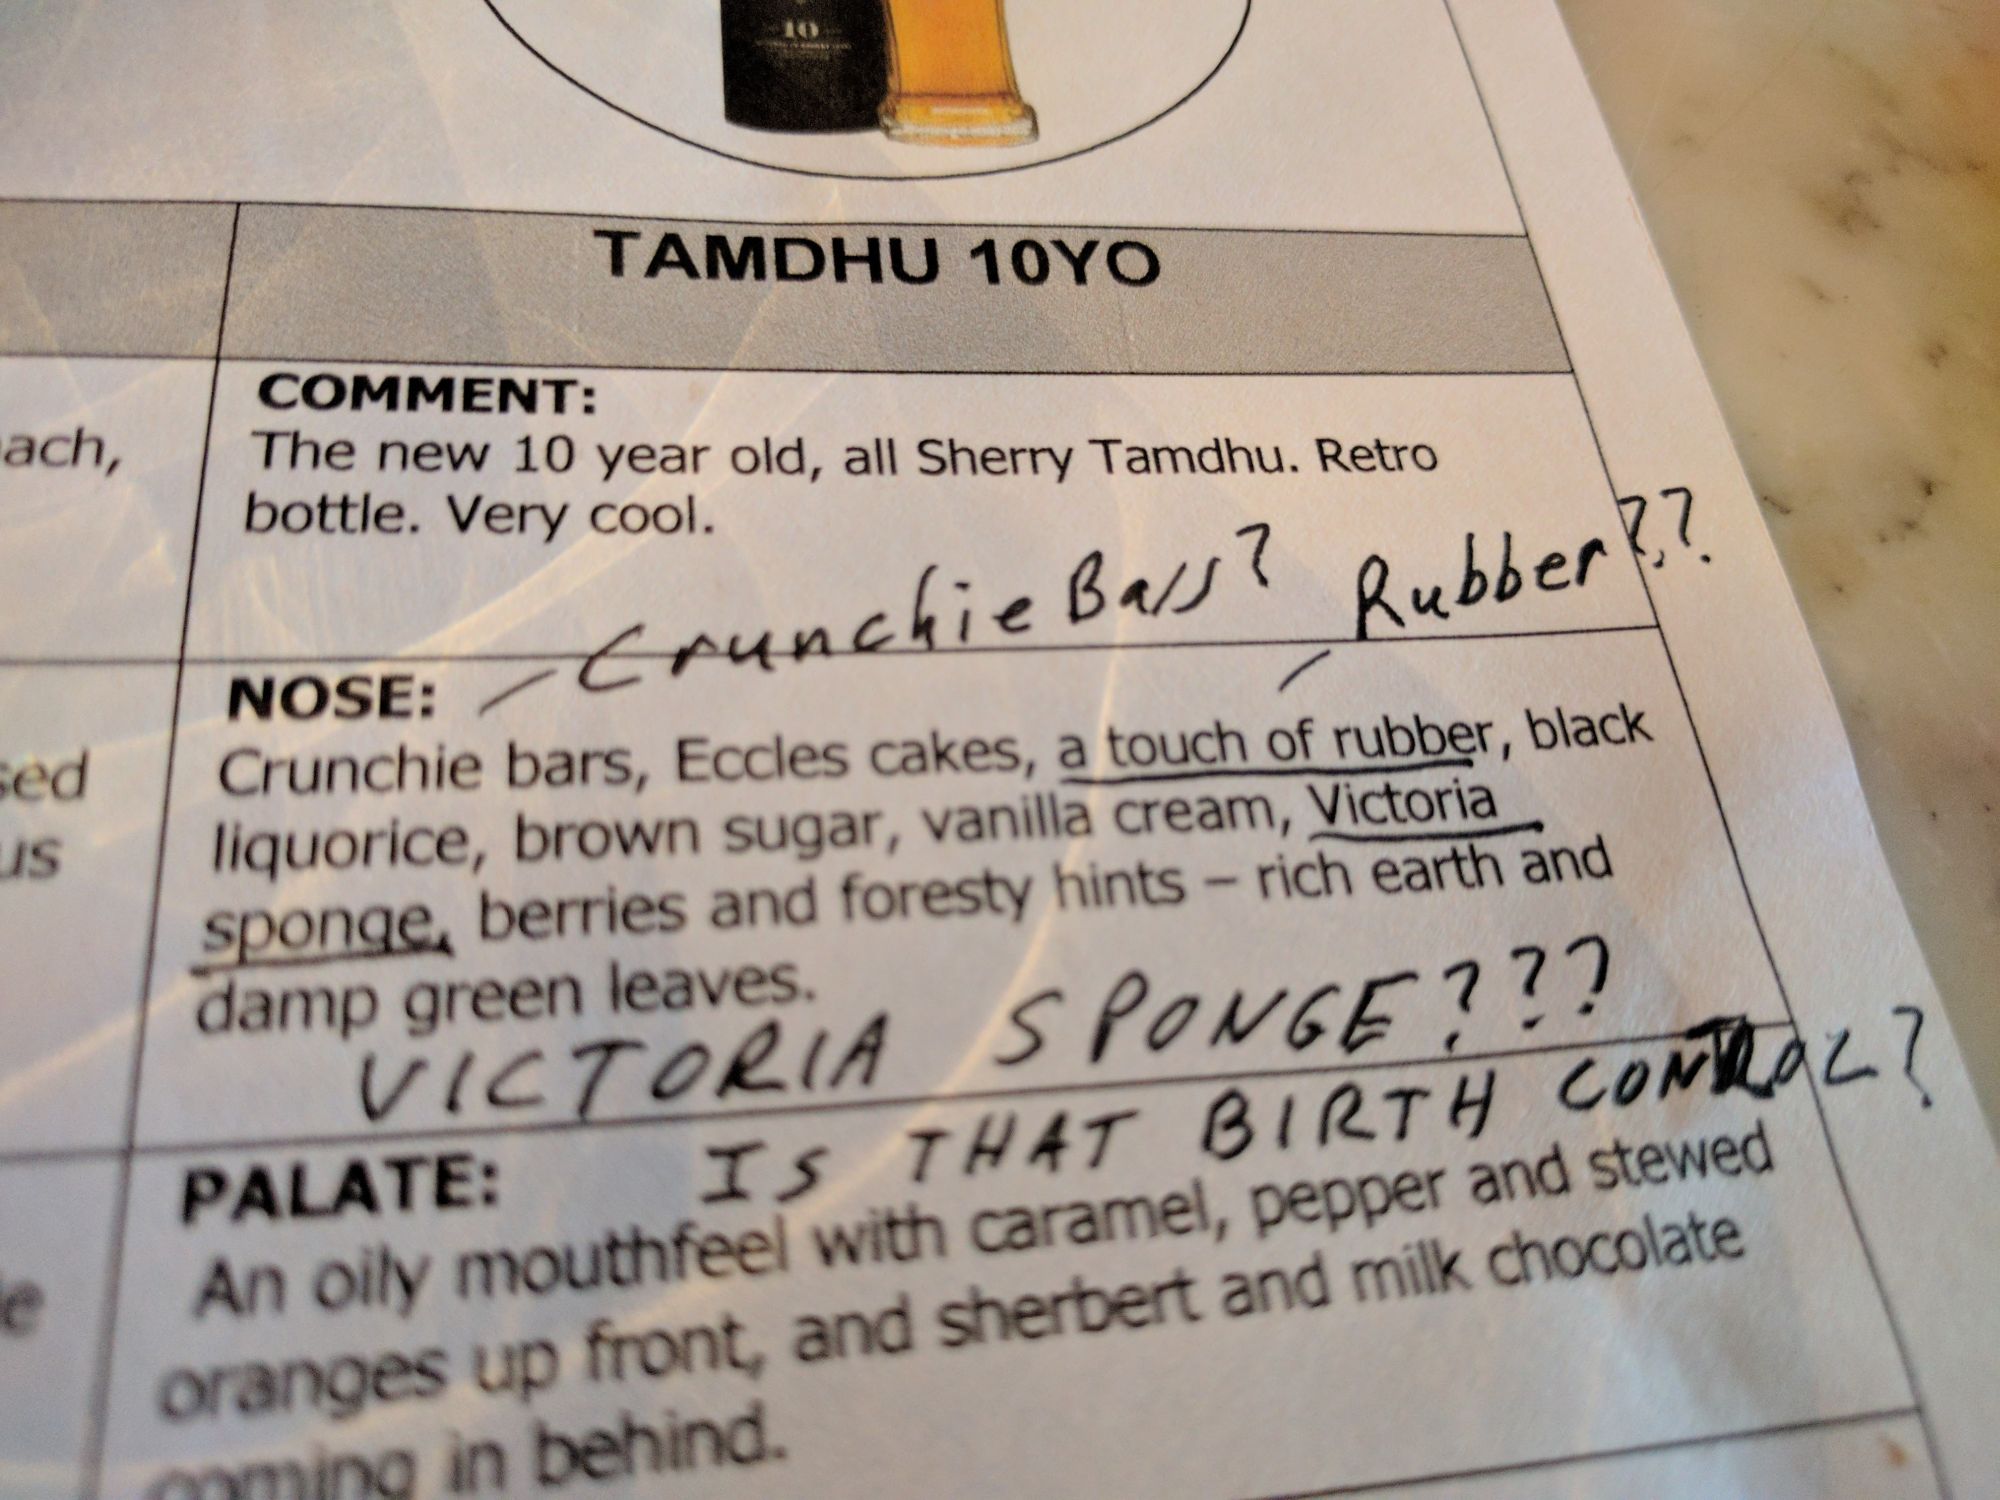 10
TAMDHU 10YO
COMMENT:
The new 10 year old, all Sherry Tamdhu. Retro
bottle. Very cool.
ach,
Crunchie Bars? Rubber???
NOSE:
Crunchie bars, Eccles cakes, a touch of rubber, black
liquorice, brown sugar, vanilla cream, Victoria
sponge, berries and foresty hints – rich earth and
damp green leaves.
sed
us
VICTORIA SPONGE???
IS THAT BIRTH CONTROL?
PALATE:
An oily mouthfeel with caramel, pepper and stewed
oranges up front, and sherbert and milk chocolate
coming in behind.